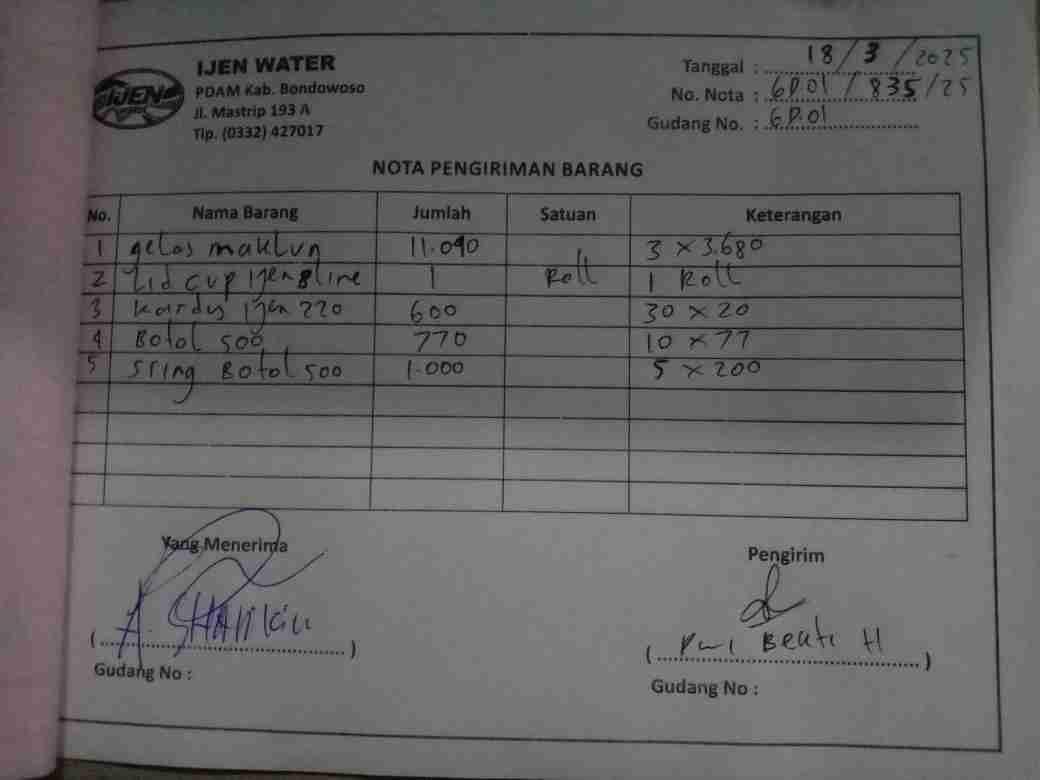 IJEN
IJEN WATER
PDAM Kab. Bondowoso
Jl. Mastrip 193 A
Tlp. (0332) 427017
Tanggal : 18/3/2025
No. Nota : GD.01/835/25
Gudang No. : GD.01
NOTA PENGIRIMAN BARANG
No. Nama Barang Jumlah Satuan Keterangan
1 gelas maklun 11.040 3 x 3.680
2 Lid cup Ijen 8 line 1 Roll 1 Roll
3 Kardus Ijen 220 600 30 x 20
4 Botol 500 770 10 x 77
5 Sring Botol 500 1.000 5 x 200
Yang Menerima
Pengirim
(A. )
( Beati H)
Gudang No :
Gudang No :